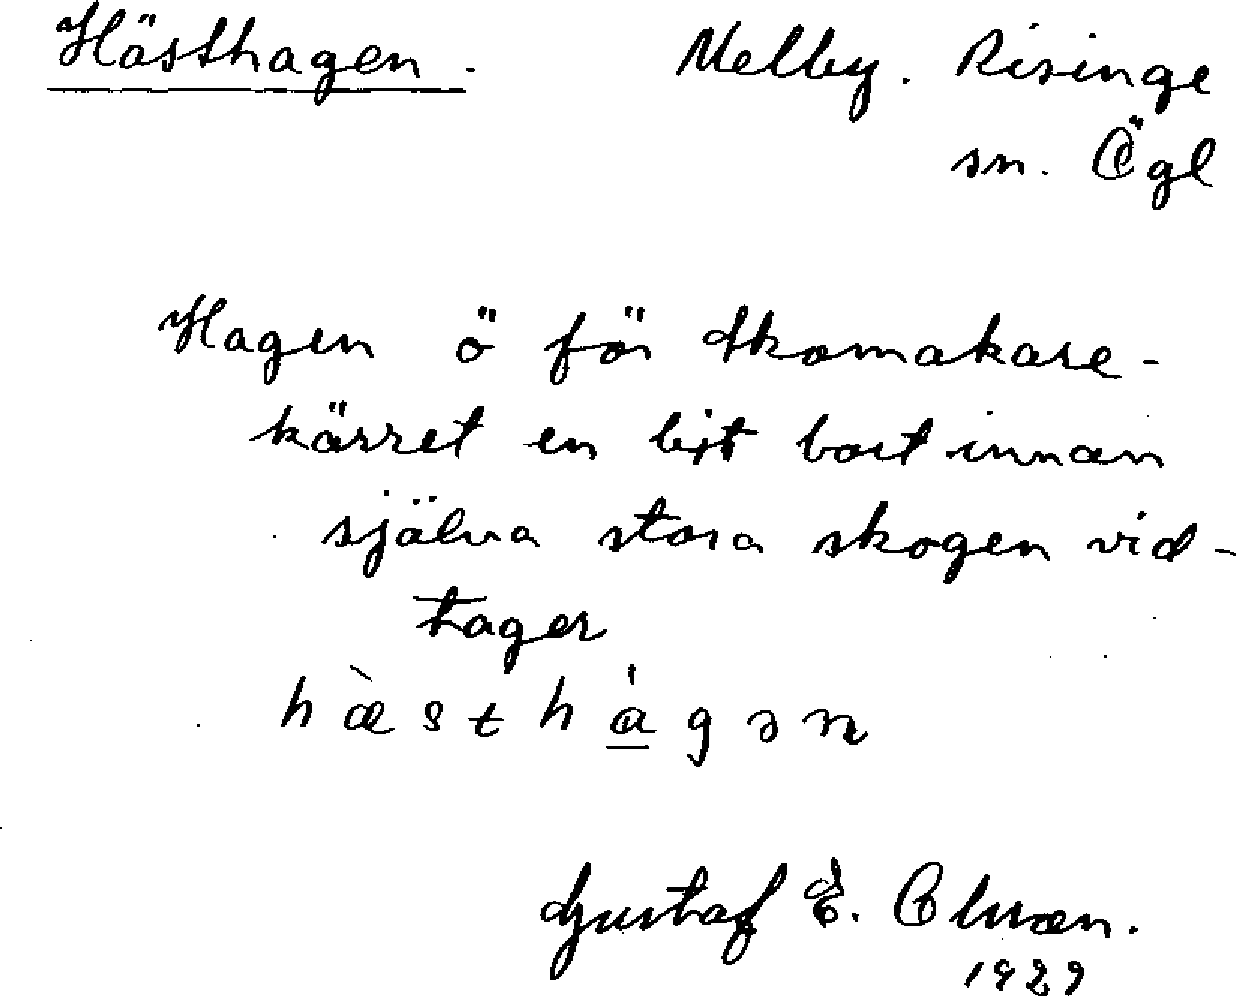 Hästhagen. Melby. Risinge
sn. Ögl
Hagen ö för Skomakare-
kärret en bit bort innan
själva stora skogen vid-
tager
hæ̀sthágən
Gustaf E.
1929